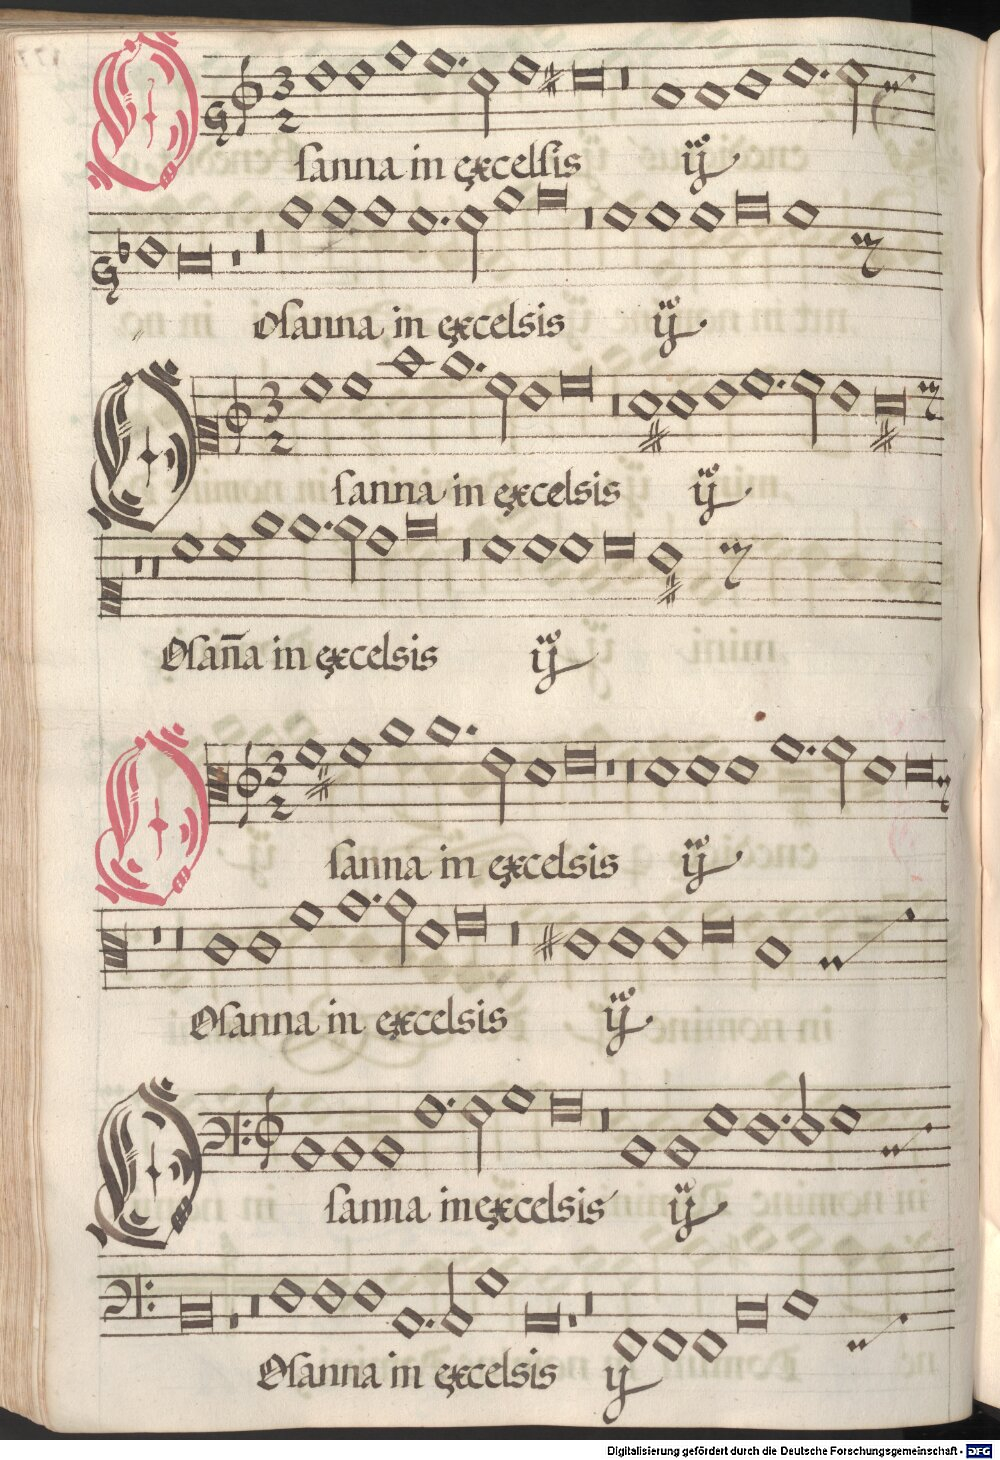 Osanna in excelsis ij
Osanna in excelsis ij
Osanna in excelsis ij
Osan̄a in excelsis ij
Osanna in excelsis ij
Osanna in excelsis ij
Osanna in excelsis ij
Osanna in excelsis ij
Digitalisierung gefördert durch die Deutsche Forschungsgemeinschaft - DFG